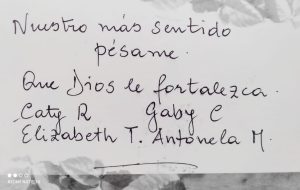 Nuestro más sentido
pésame.
Que Dios le fortalezca.
Caty R Gaby C
Elizabeth T. Antonela M.